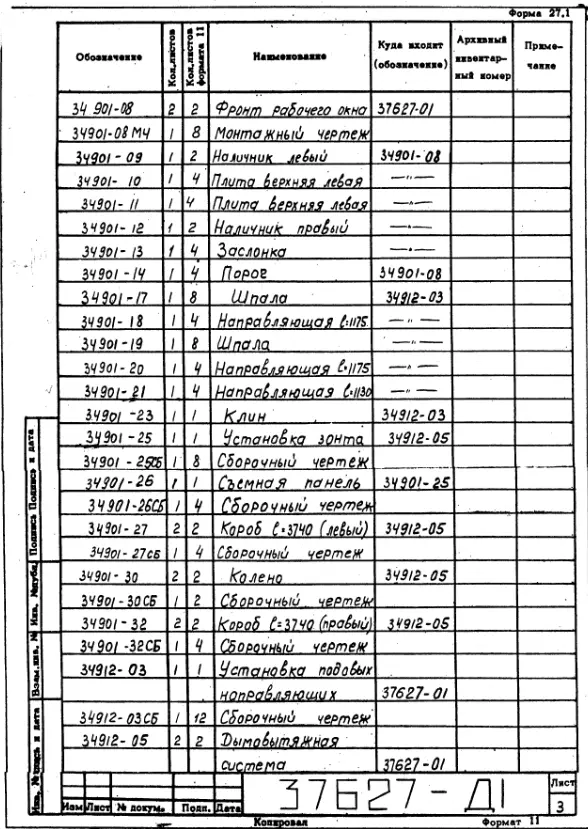 Форма 27.1
Обозначение Кол.листов Кол.листов формата 11 Наименование Куда входит (обозначение) Архивный инвентарный номер Примечание
34 901-08 2 2 Фронт рабочего окна 37627-01
34901-08 МЧ 1 8 Монтажный чертеж
34901-09 1 2 Наличник левый 34901-08
34901-10 1 4 Плита верхняя левая —"—
34901-11 1 4 Плита верхняя левая —"—
34901-12 1 2 Наличник правый —"—
34901-13 1 4 Заслонка —"—
34901-14 1 4 Порог 34901-08
34901-17 1 8 Шпала 34912-03
34901-18 1 4 Направляющая ℓ=1175 —"—
34901-19 1 8 Шпала —"—
34901-20 1 4 Направляющая ℓ=1175 —"—
34901-21 1 4 Направляющая ℓ=1130 —"—
34901-23 1 1 Клин 34912-03
34901-25 1 1 Установка зонта 34912-05
34901-25СБ 1 8 Сборочный чертеж
34901-26 1 1 Съемная панель 34901-25
34901-26СБ 1 4 Сборочный чертеж
34901-27 2 2 Короб ℓ=3740 (левый) 34912-05
34901-27СБ 1 4 Сборочный чертеж
34901-30 2 2 Колено 34912-05
34901-30СБ 1 2 Сборочный чертеж
34901-32 2 2 Короб ℓ=3740 (правый) 34912-05
34901-32СБ 1 4 Сборочный чертеж
34912-03 1 1 Установка подовых
направляющих 37627-01
34912-03СБ 1 12 Сборочный чертеж
34912-05 2 2 Дымовытяжная
система 37627-01
Подпись и дата
Инв. № дубл. Подпись
Взам.инв. №
Инв. № подпись и дата
37627-Д1
Лист
3
Изм Лист № докум. Подп. Дата
Копировал Формат 11